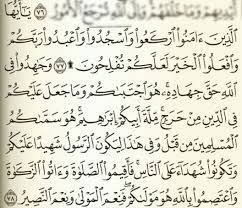 أَيْدِيهِمْ وَمَا خَلْفَهُمْ وَإِلَى اللَّهِ تُرْجَعُ الْأُمُورُ ٧٦ يَٰٓأَيُّهَا
الَّذِينَ ءَامَنُوا ارْكَعُوا وَاسْجُدُوا وَاعْبُدُوا رَبَّكُمْ
وَافْعَلُوا الْخَيْرَ لَعَلَّكُمْ تُفْلِحُونَ ۩ ٧٧ وَجَٰهِدُوا فِي
اللَّهِ حَقَّ جِهَادِهِ هُوَ اجْتَبَىٰكُمْ وَمَا جَعَلَ عَلَيْكُمْ
فِي الدِّينِ مِنْ حَرَجٍ مِّلَّةَ أَبِيكُمْ إِبْرَٰهِيمَ هُوَ سَمَّىٰكُمُ
الْمُسْلِمِينَ مِن قَبْلُ وَفِي هَٰذَا لِيَكُونَ الرَّسُولُ شَهِيدًا عَلَيْكُمْ
وَتَكُونُوا شُهَدَآءَ عَلَى النَّاسِ فَأَقِيمُوا الصَّلَوٰةَ وَءَاتُوا الزَّكَوٰةَ
وَاعْتَصِمُوا بِاللَّهِ هُوَ مَوْلَىٰكُمْ فَنِعْمَ الْمَوْلَىٰ وَنِعْمَ النَّصِيرُ ٧٨